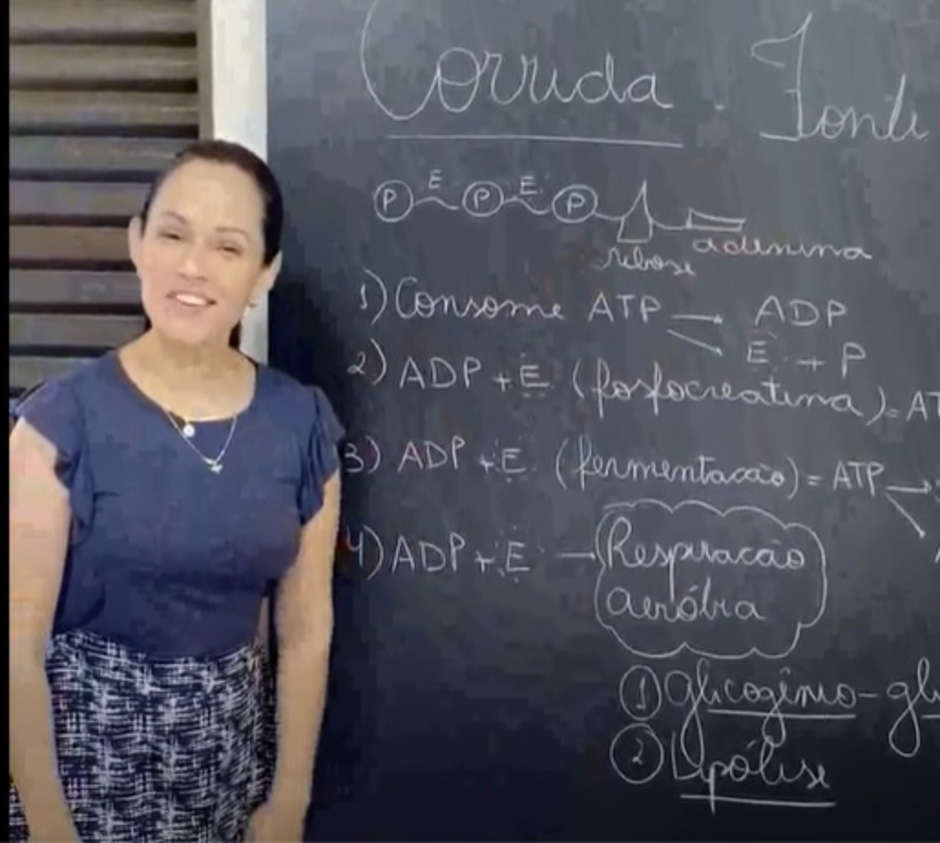 Corrida. Fonte
P E P E P
adenina
ribose
1) Consome ATP → ADP
E + P
2) ADP + E (fosfocreatina) = AT
3) ADP + E (fermentação) = ATP →
4) ADP + E → Respiração
aeróbia
① glicogênio - gli
② Lipólise